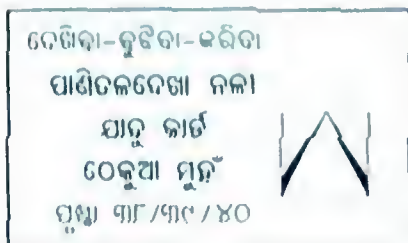 ଦେଖିବା-ବୁଝିବା-କରିବା
ପାଣିତଳଦେଖା ନଳୀ
ଯାଦୁ କାର୍ଡ
ଠେକୁଆ ମୁହଁ
ପୃଷ୍ଠା ୩୮/୩୯/୪୦